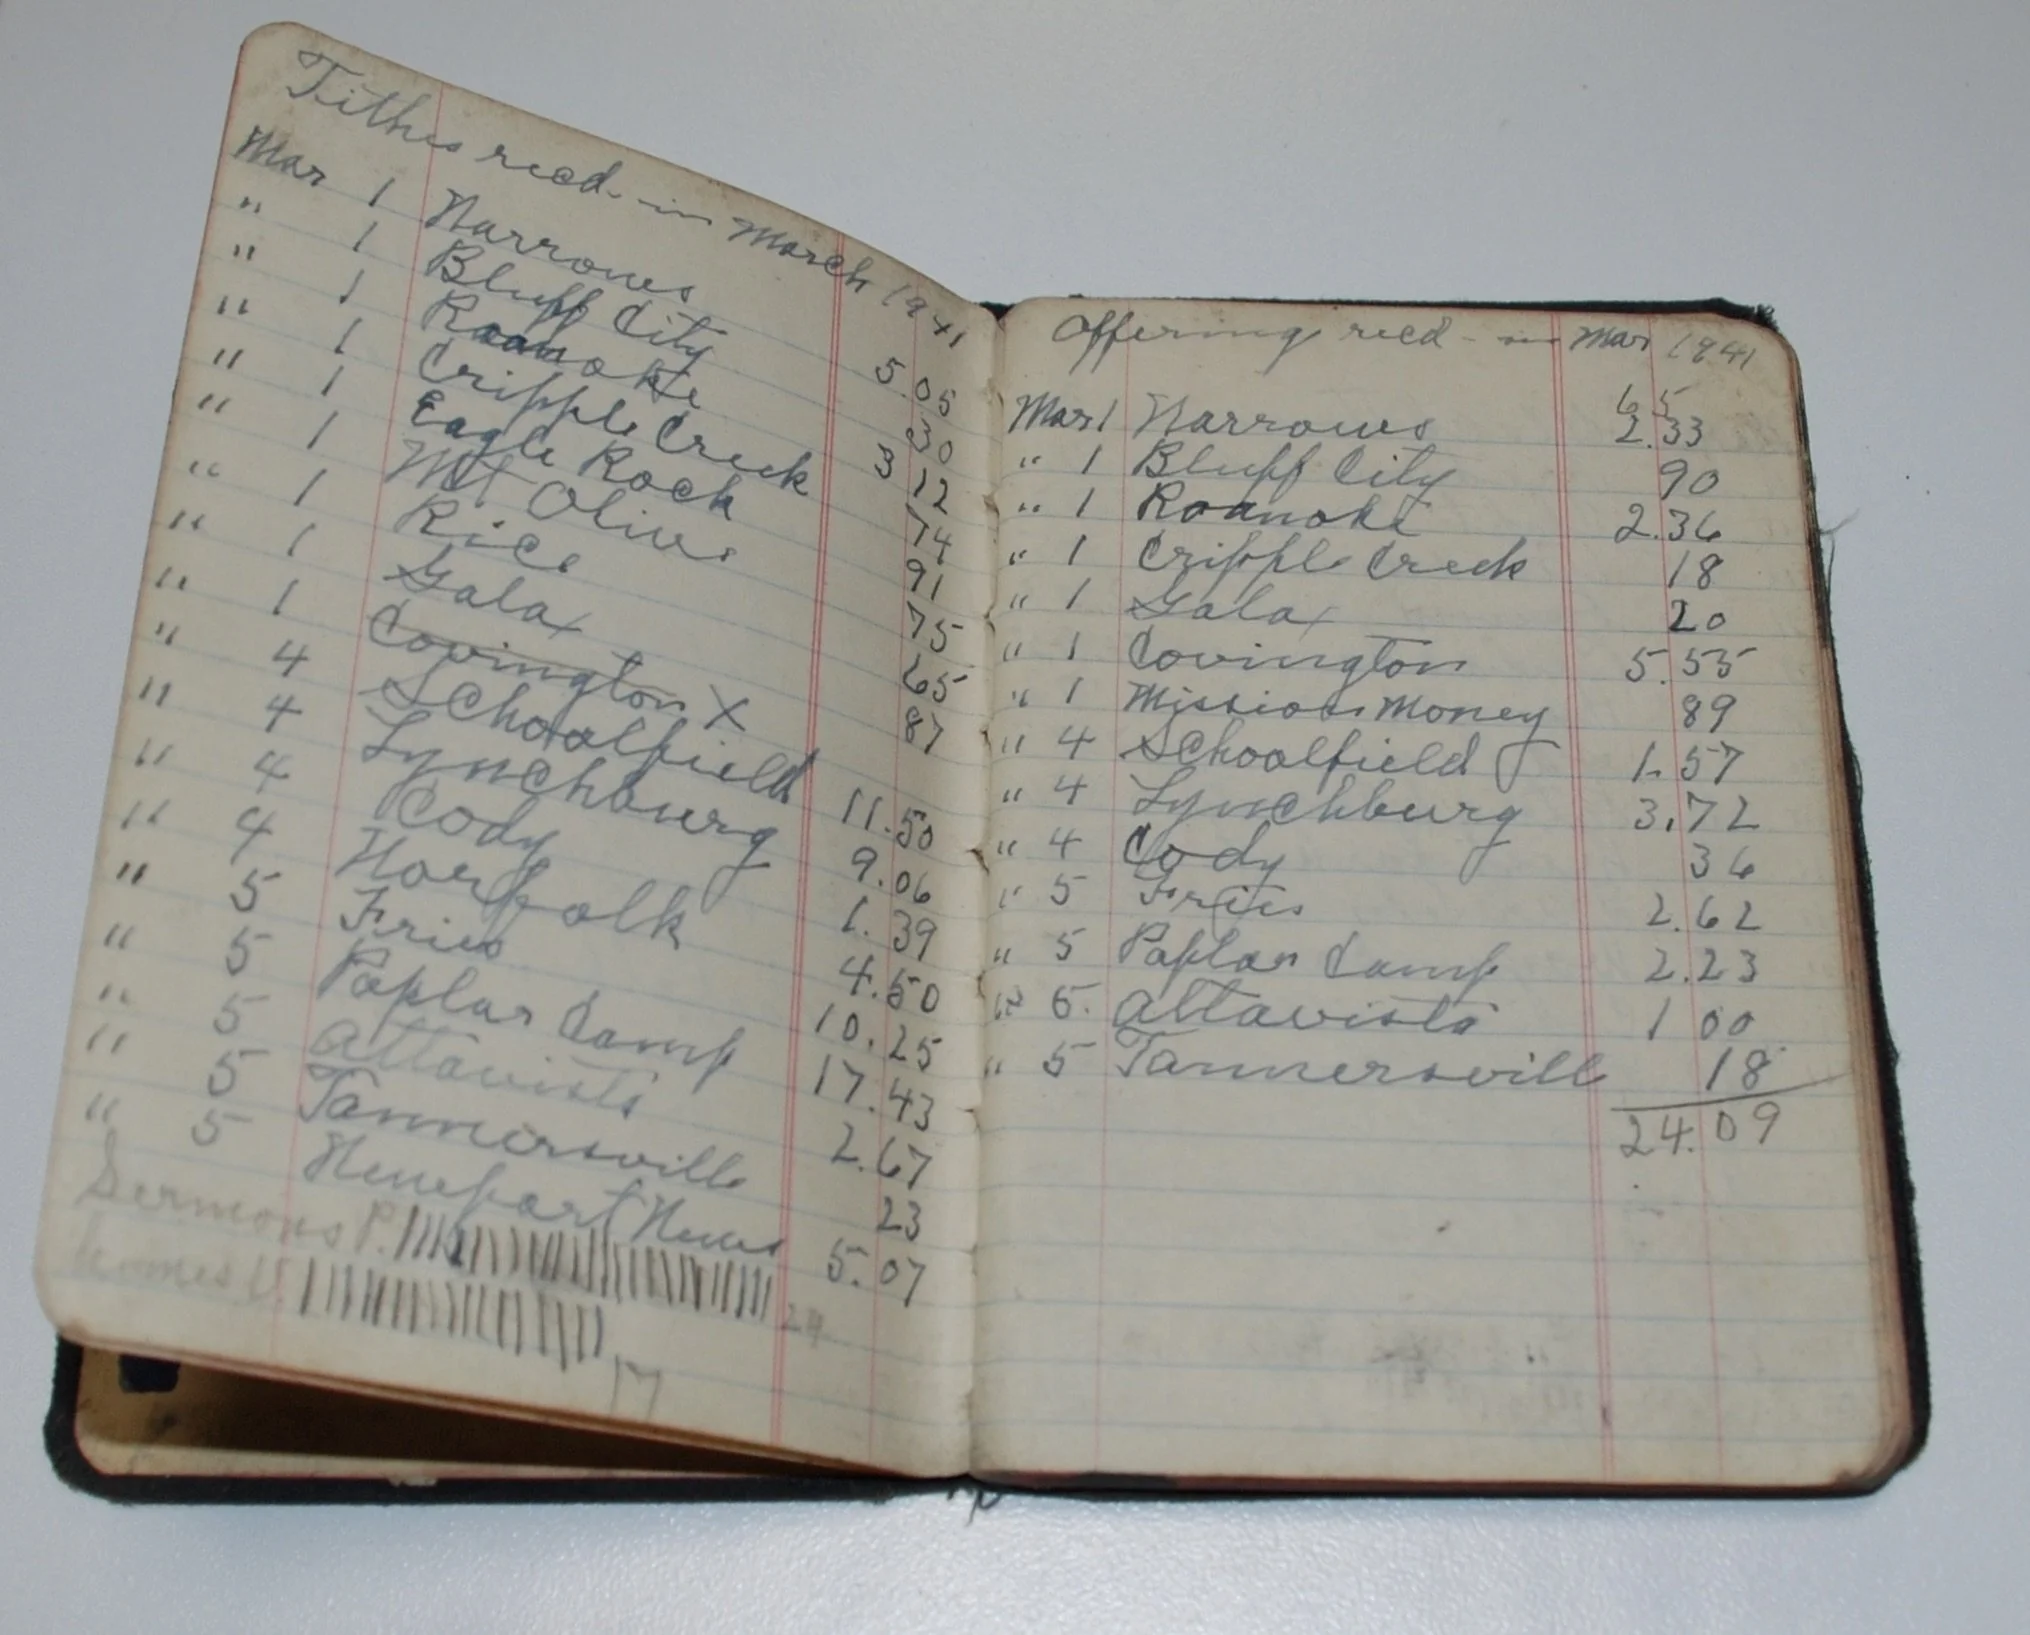 Tithes recd - in March 1941
Mar 1 Narrows 5.05
" 1 Bluff City 30
" 1 Roanoke 3 12
" 1 Cripple Creek 74
" 1 Eagle Rock 91
" 1 Mt Olive 75
" 1 Rice 65
" 1 Galax 87
" 1 Covington X
" 4 Schoolfield 11.50
" 4 Lynchburg 9.06
" 4 Cody 1.39
" 4 Norfolk 4.50
" 5 Fries 10.25
" 5 Poplar Camp 17.43
" 5 Altavista 2.67
" 5 Tannersville 23
" 5 Newport News 5.07
Sermons P. 24
Homes V. 17
Offering recd - in Mar 1941
65
Mar 1 Narrows 2.33
" 1 Bluff City 90
" 1 Roanoke 2.36
" 1 Cripple Creek 18
" 1 Galax 20
" 1 Covington 5.55
" 1 Mission Money 89
" 4 Schoolfield 1.57
" 4 Lynchburg 3.72
" 4 Cody 36
" 5 Fries 2.62
" 5 Poplar Camp 2.23
" 5. Altavista 1 00
" 5 Tannersvill 18
24.09